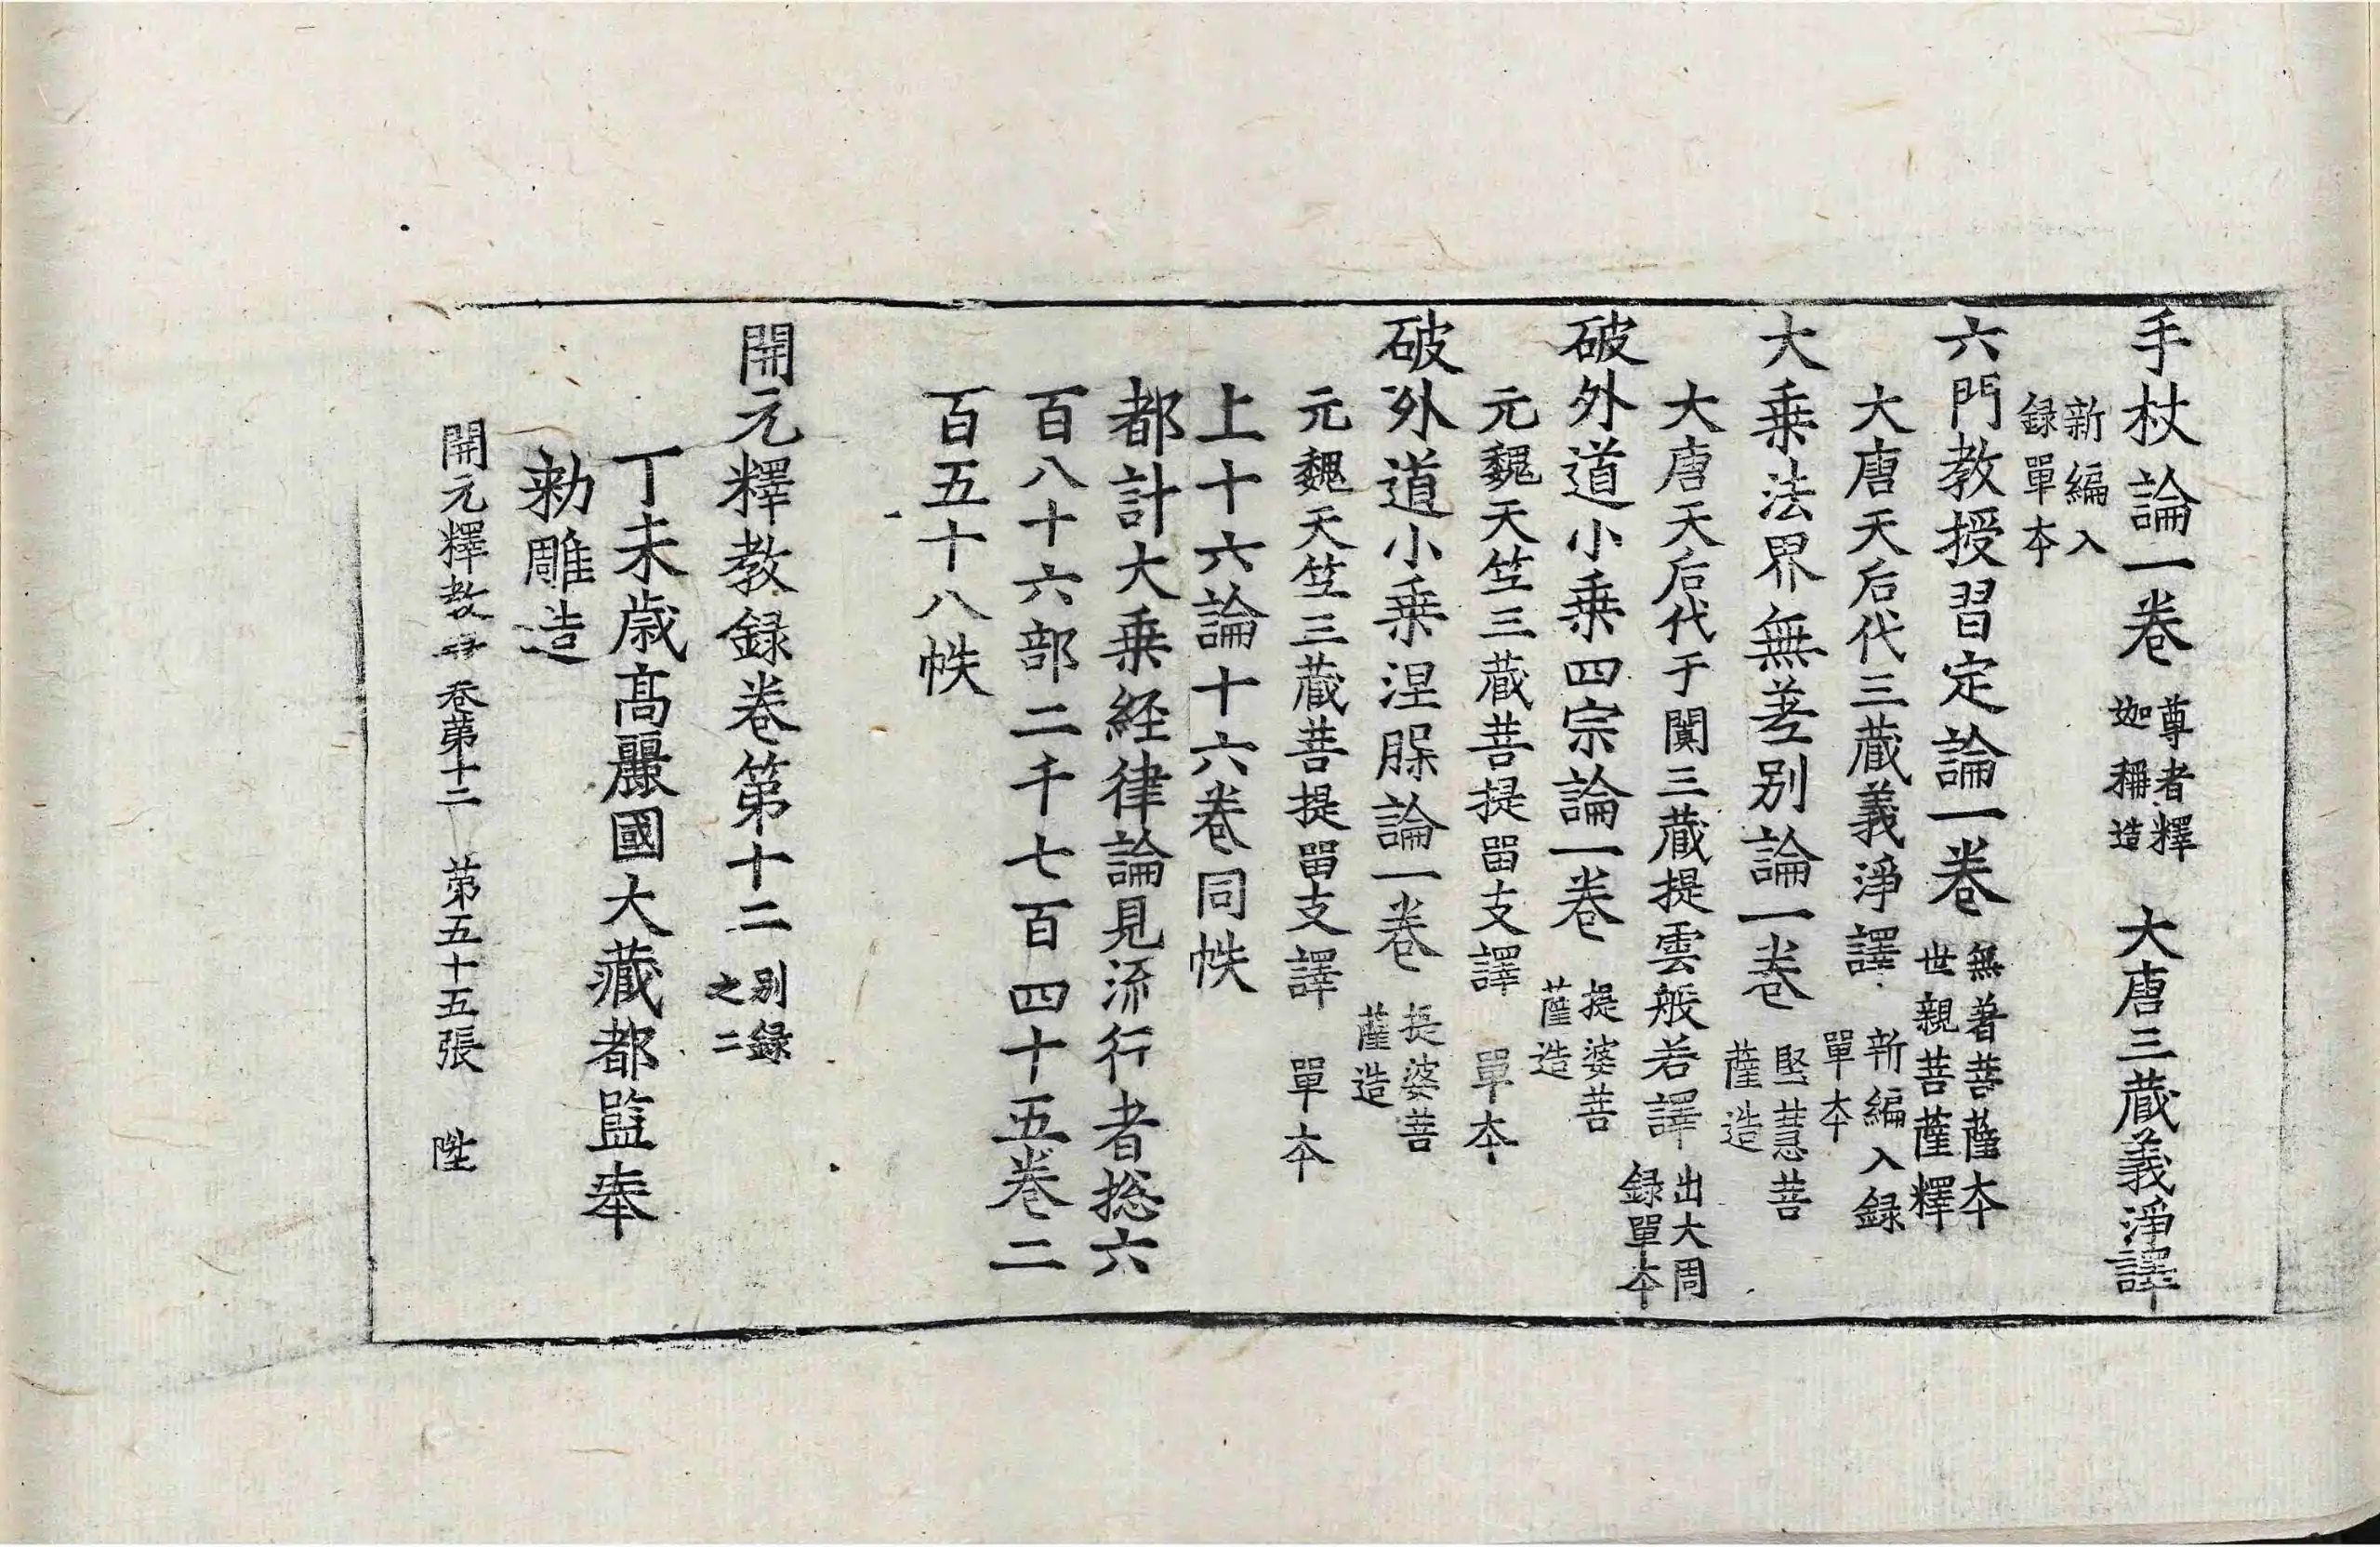 手杖論一卷 尊者釋迦稱造 大唐三藏義淨譯
新編入録單本
六門教授習定論一卷 無著菩薩本世親菩薩釋
大唐天后代三藏義淨譯 新編入録單本
大乗法界無差别論一卷 堅慧菩薩造
大唐天后代于闐三藏提雲般若譯 出大周録單本
破外道小乗四宗論一卷 提婆菩薩造
元魏天竺三藏菩提留支譯 單本
破外道小乗涅槃論一卷 提婆菩薩造
元魏天竺三藏菩提留支譯 單本
上十六論十六卷同帙
都計大乗經律論見流行者捴六
百八十六部二千七百四十五卷二
百五十八帙
開元釋教録卷第十二 别録之二
丁未歳高麗國大藏都監奉
勑雕造
開元釋教 卷苐十二 苐五十五張 陞